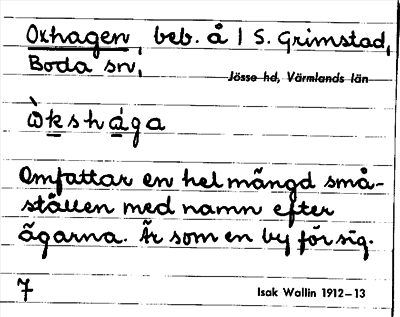 Oxhagen, beb. å 1 S. Grimstad,
Boda sn,
Jösse hd, Värmlands län
ò̀kshága
Omfattar en hel mängd små-
ställen med namn efter
ägarna. Är som en by för sig.
7
Isak Wallin 1912–13